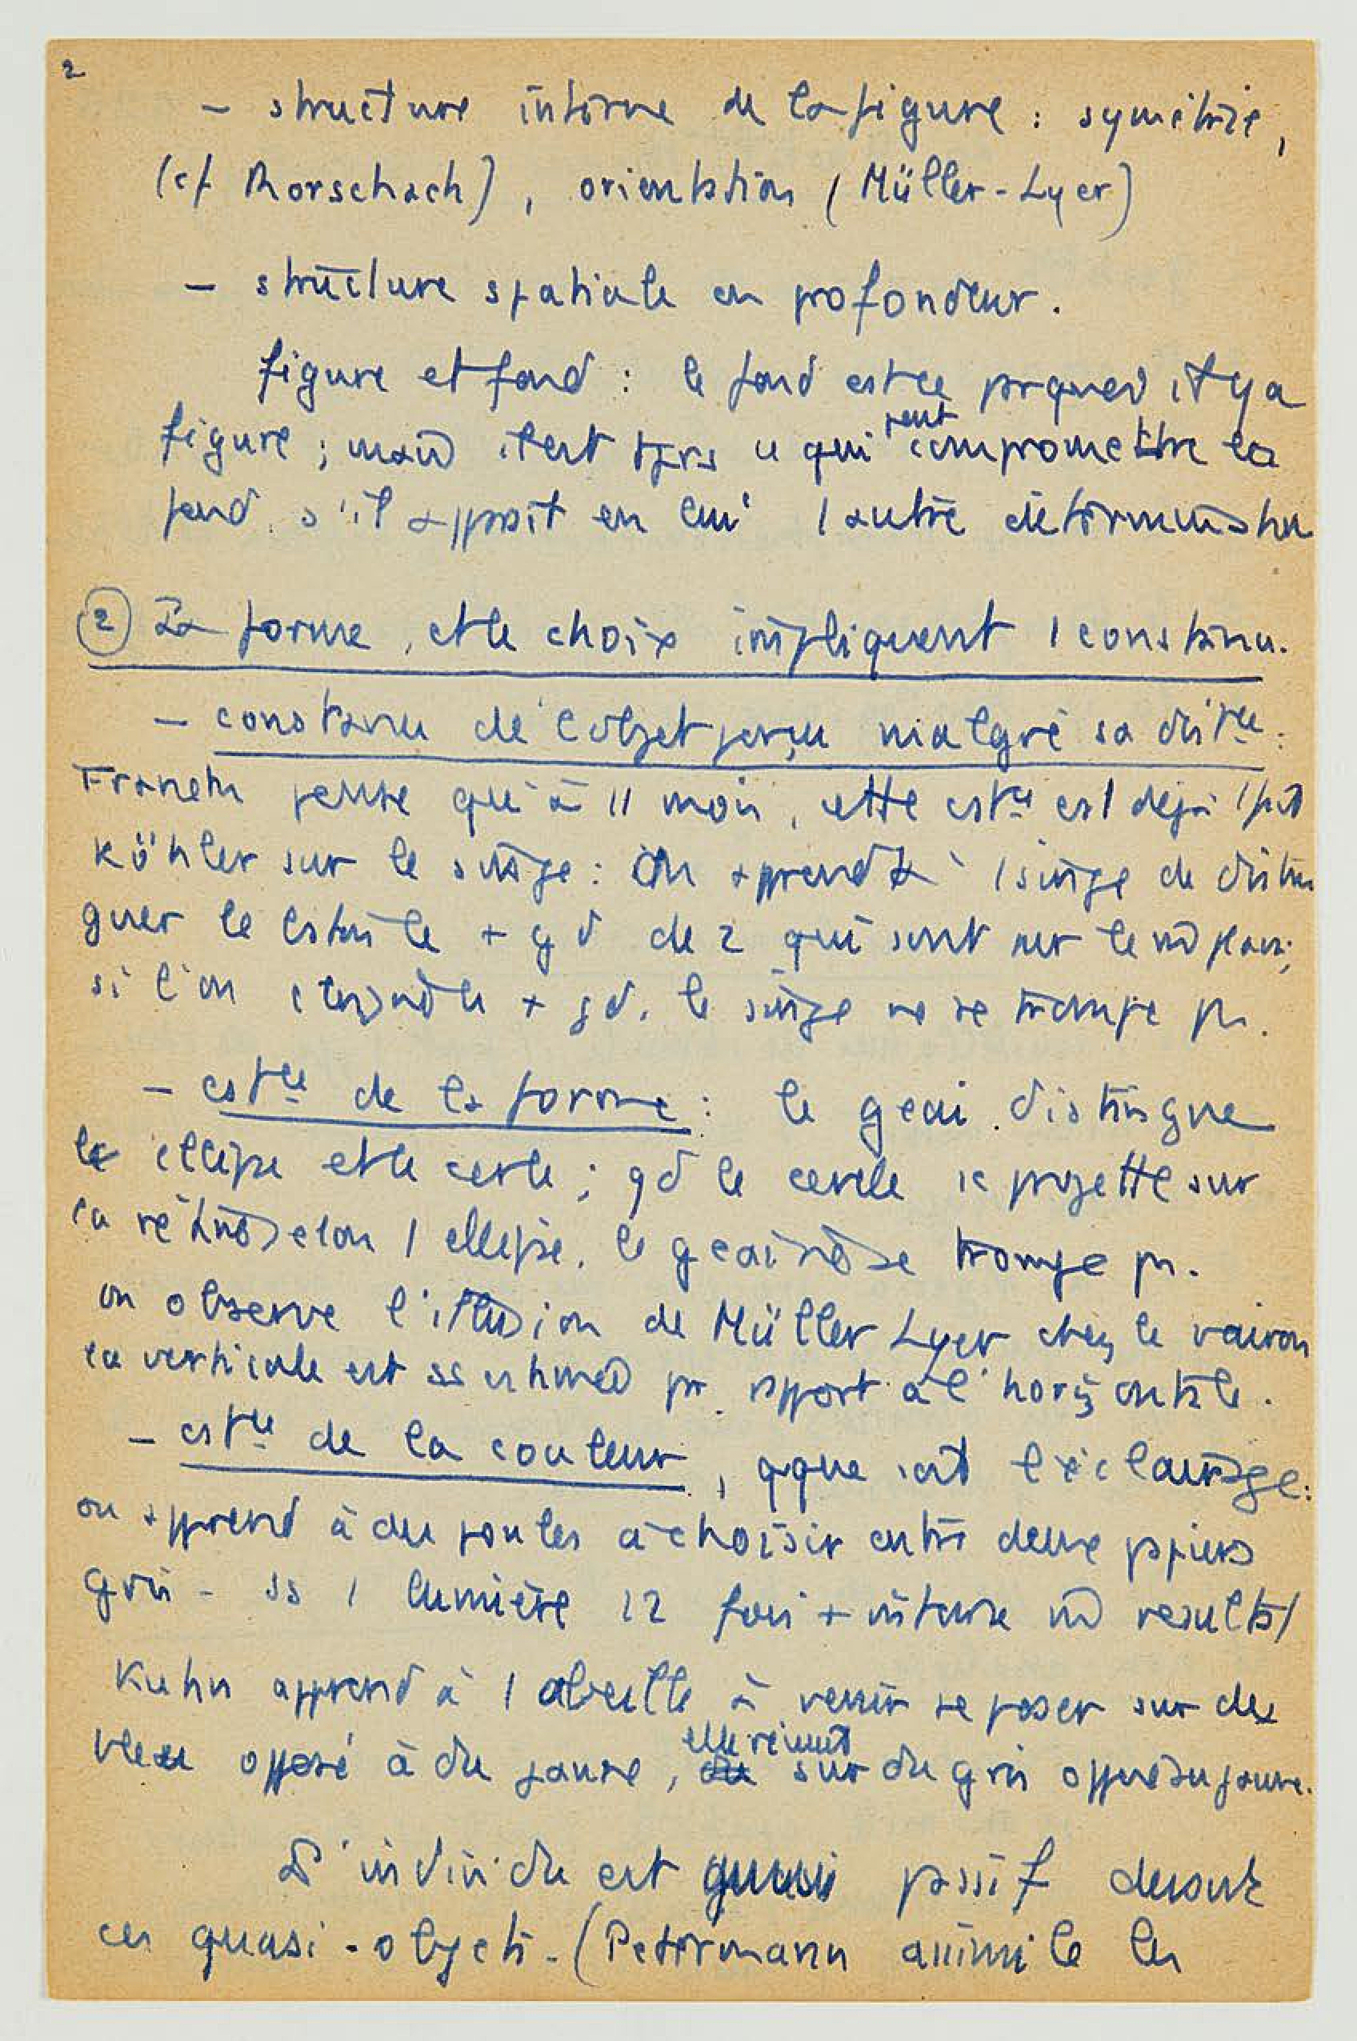 2
- structure interne de la figure : symétrie,
(cf Rorschach), orientation (Müller-Lyer)
- structure spatiale en profondeur.
figure et fond : le fond est ce qd il y a
figure ; mais il est tjrs ce qui peut compromettre la
fond s'il apparaît en lui 1 autre détermination
② La forme, et le choix impliquent 1 constance.
- constance de l'objet perçu malgré sa distce :
pense qu'à 11 mois, cette cstce est déjà 1 fait
Köhler sur le singe : On apprend à 1 singe de distin
guer le + gd de 2 qui sont sur le m̂ plan ;
si l'on + gd, le singe ne se trompe ps.
- cstce de la forme : le geai distingue
le ellipse et le cercle ; qd le cercle se projette sur
la rétine selon 1 ellipse, le geai ne se trompe ps.
on observe l'illusion de Müller Lyer chez le vairon
la verticale est ss estimée pr rapport à l'horizontale.
- cstce de la couleur, qque soit l'éclairage :
on apprend à des poules à choisir entre deux papiers
gris - ss 1 lumière 12 fois + intense m̂ résultat
Kuhn apprend à 1 abeille à venir se poser sur du
bleu opposé à du jaune, elle vient sur du gris opposé au jaune.
L'individu est quasi passif devant
ces quasi-objets - (Petermann assimile les